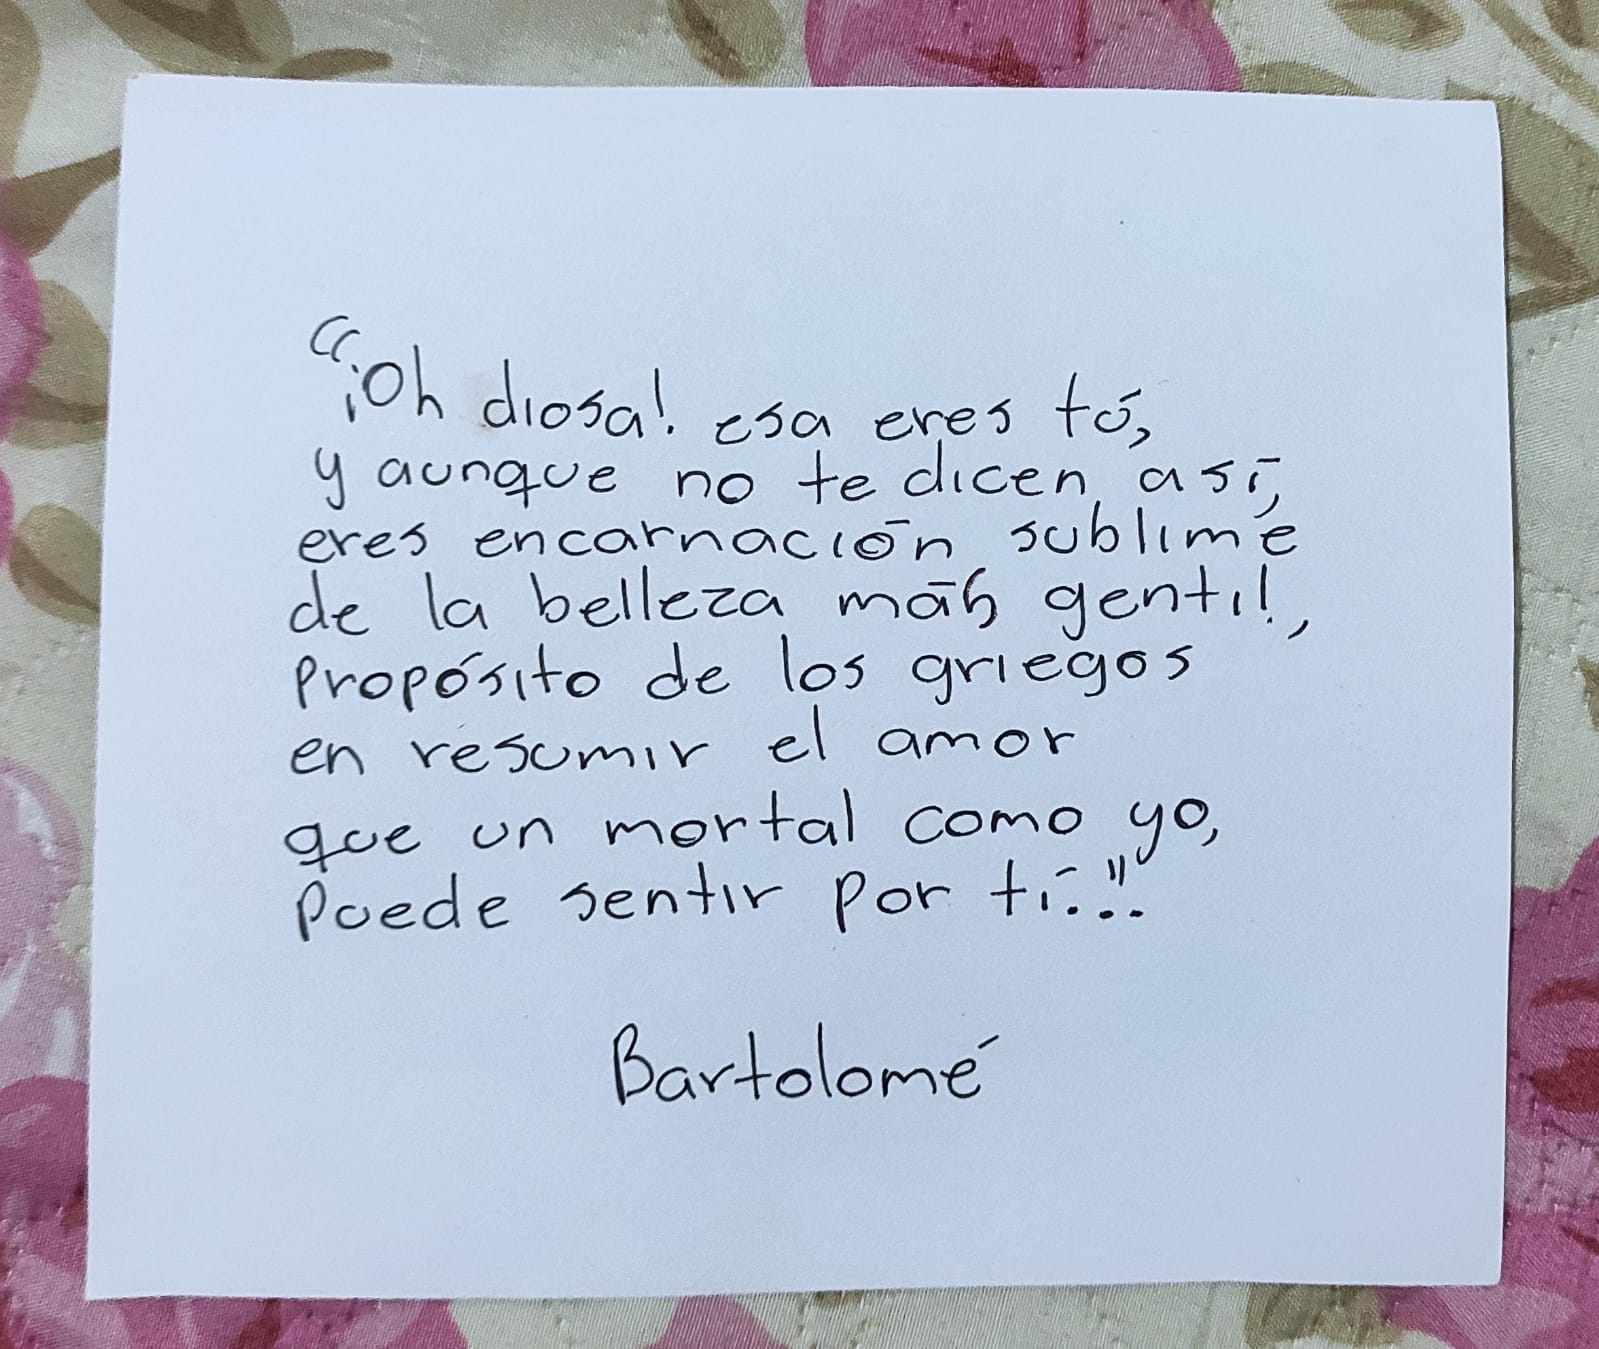 "¡Oh diosa! esa eres tú,
y aunque no te dicen así,
eres encarnación sublime
de la belleza más gentil,
propósito de los griegos
en resumir el amor
que un mortal como yo,
puede sentir por tí..."
Bartolomé